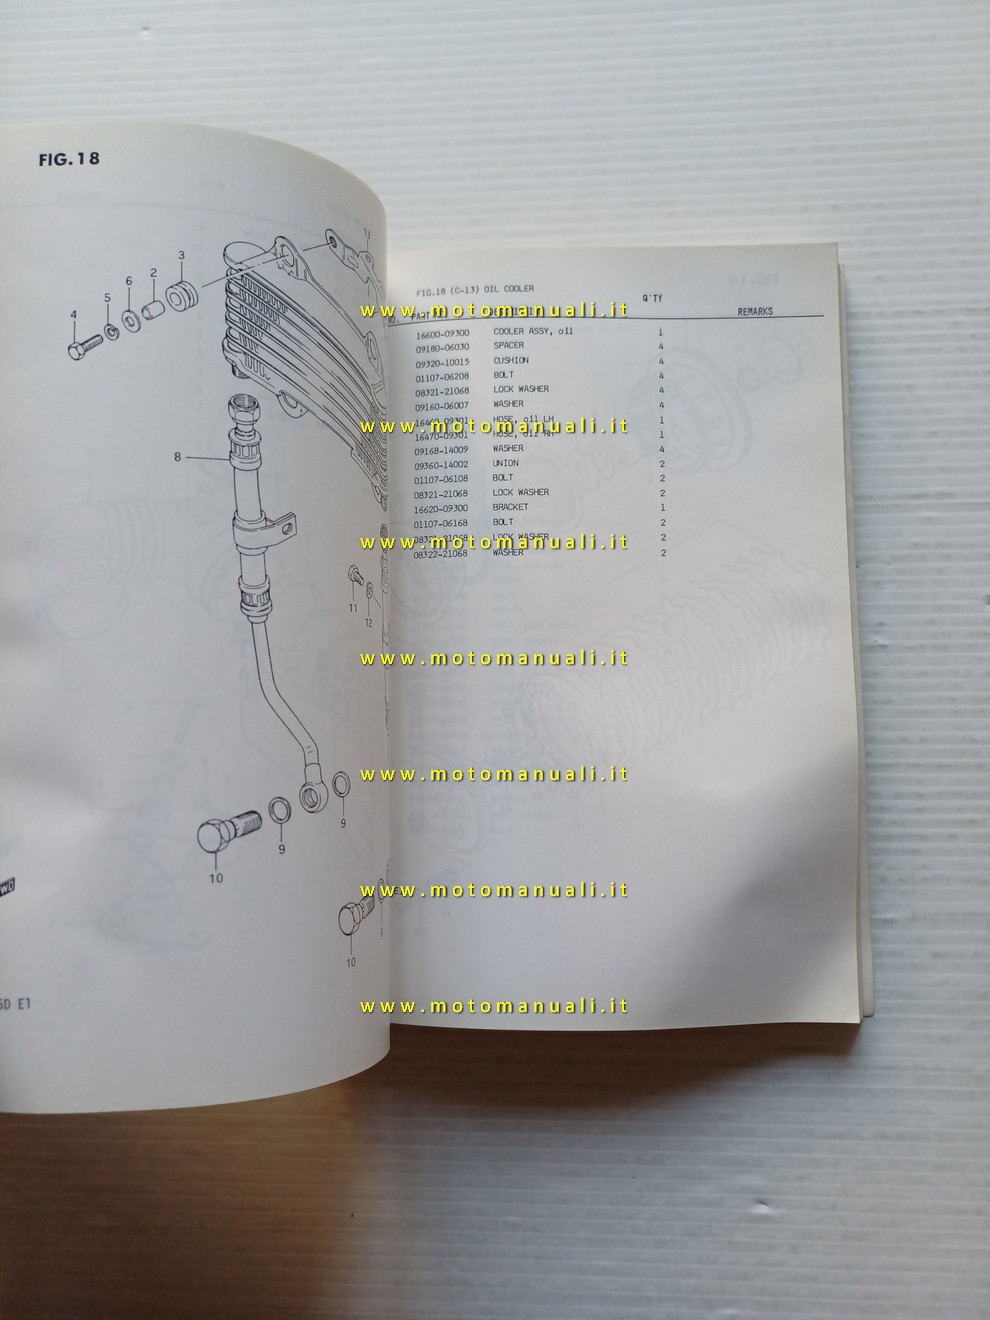 FIG.18
13
3
2
6
5
4
8
11
12
9
9
10
10
WD
6D E1
FIG.18 (C-13) OIL COOLER
Q'TY
REMARKS
16600-09300 COOLER ASSY, oil 1
09180-06030 SPACER 4
09320-10015 CUSHION 4
01107-06208 BOLT 4
08321-21068 LOCK WASHER 4
09160-06007 WASHER 4
16460-09301 HOSE, oil LH 1
16470-09301 HOSE, oil RH 1
09168-14009 WASHER 4
09360-14002 UNION 2
01107-06108 BOLT 2
08321-21068 LOCK WASHER 2
16620-09300 BRACKET 1
01107-06168 BOLT 2
08321-21068 LOCK WASHER 2
08322-21068 WASHER 2
www.motomanuali.it
www.motomanuali.it
www.motomanuali.it
www.motomanuali.it
www.motomanuali.it
www.motomanuali.it
www.motomanuali.it